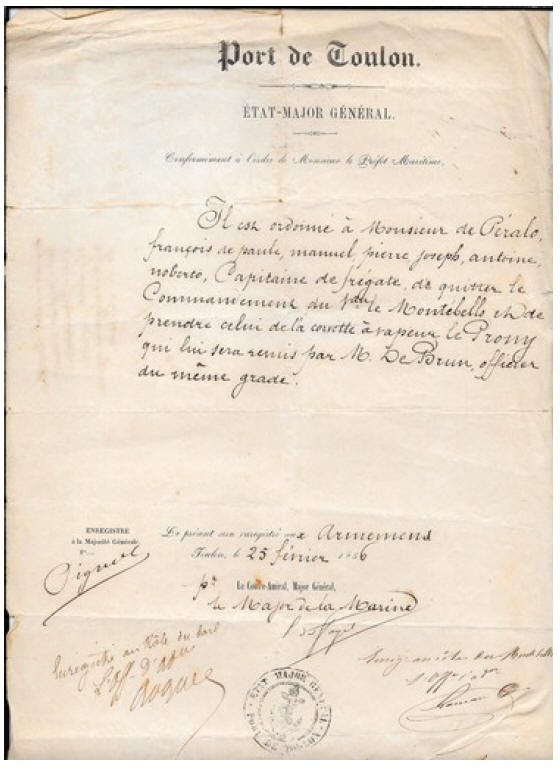 Port de Toulon.
ÉTAT-MAJOR GÉNÉRAL.
Conformément à l'ordre de Monsieur le Préfet Maritime,
Il est ordonné à Monsieur de Péralo,
françois de paule, manuel, pierre, joseph, antoine,
noberto, Capitaine de frégate, de quitter le
Commandement du Vau le Montébello et de
prendre celui de la corvette à vapeur le Prony
qui lui sera remis par M. De Brun, officier
du même grade.
ENREGISTRÉ
à la Majorité Générale,
Le présent sera enregistré aux Armemens
Toulon, le 25 février 1856
Le Contre-Amiral, Major Général,
pr le Major de la Marine
Enregistré au Rôle du bord
L'off. d'adm
ÉTAT MAJOR GÉNÉRAL
PORT DE TOULON